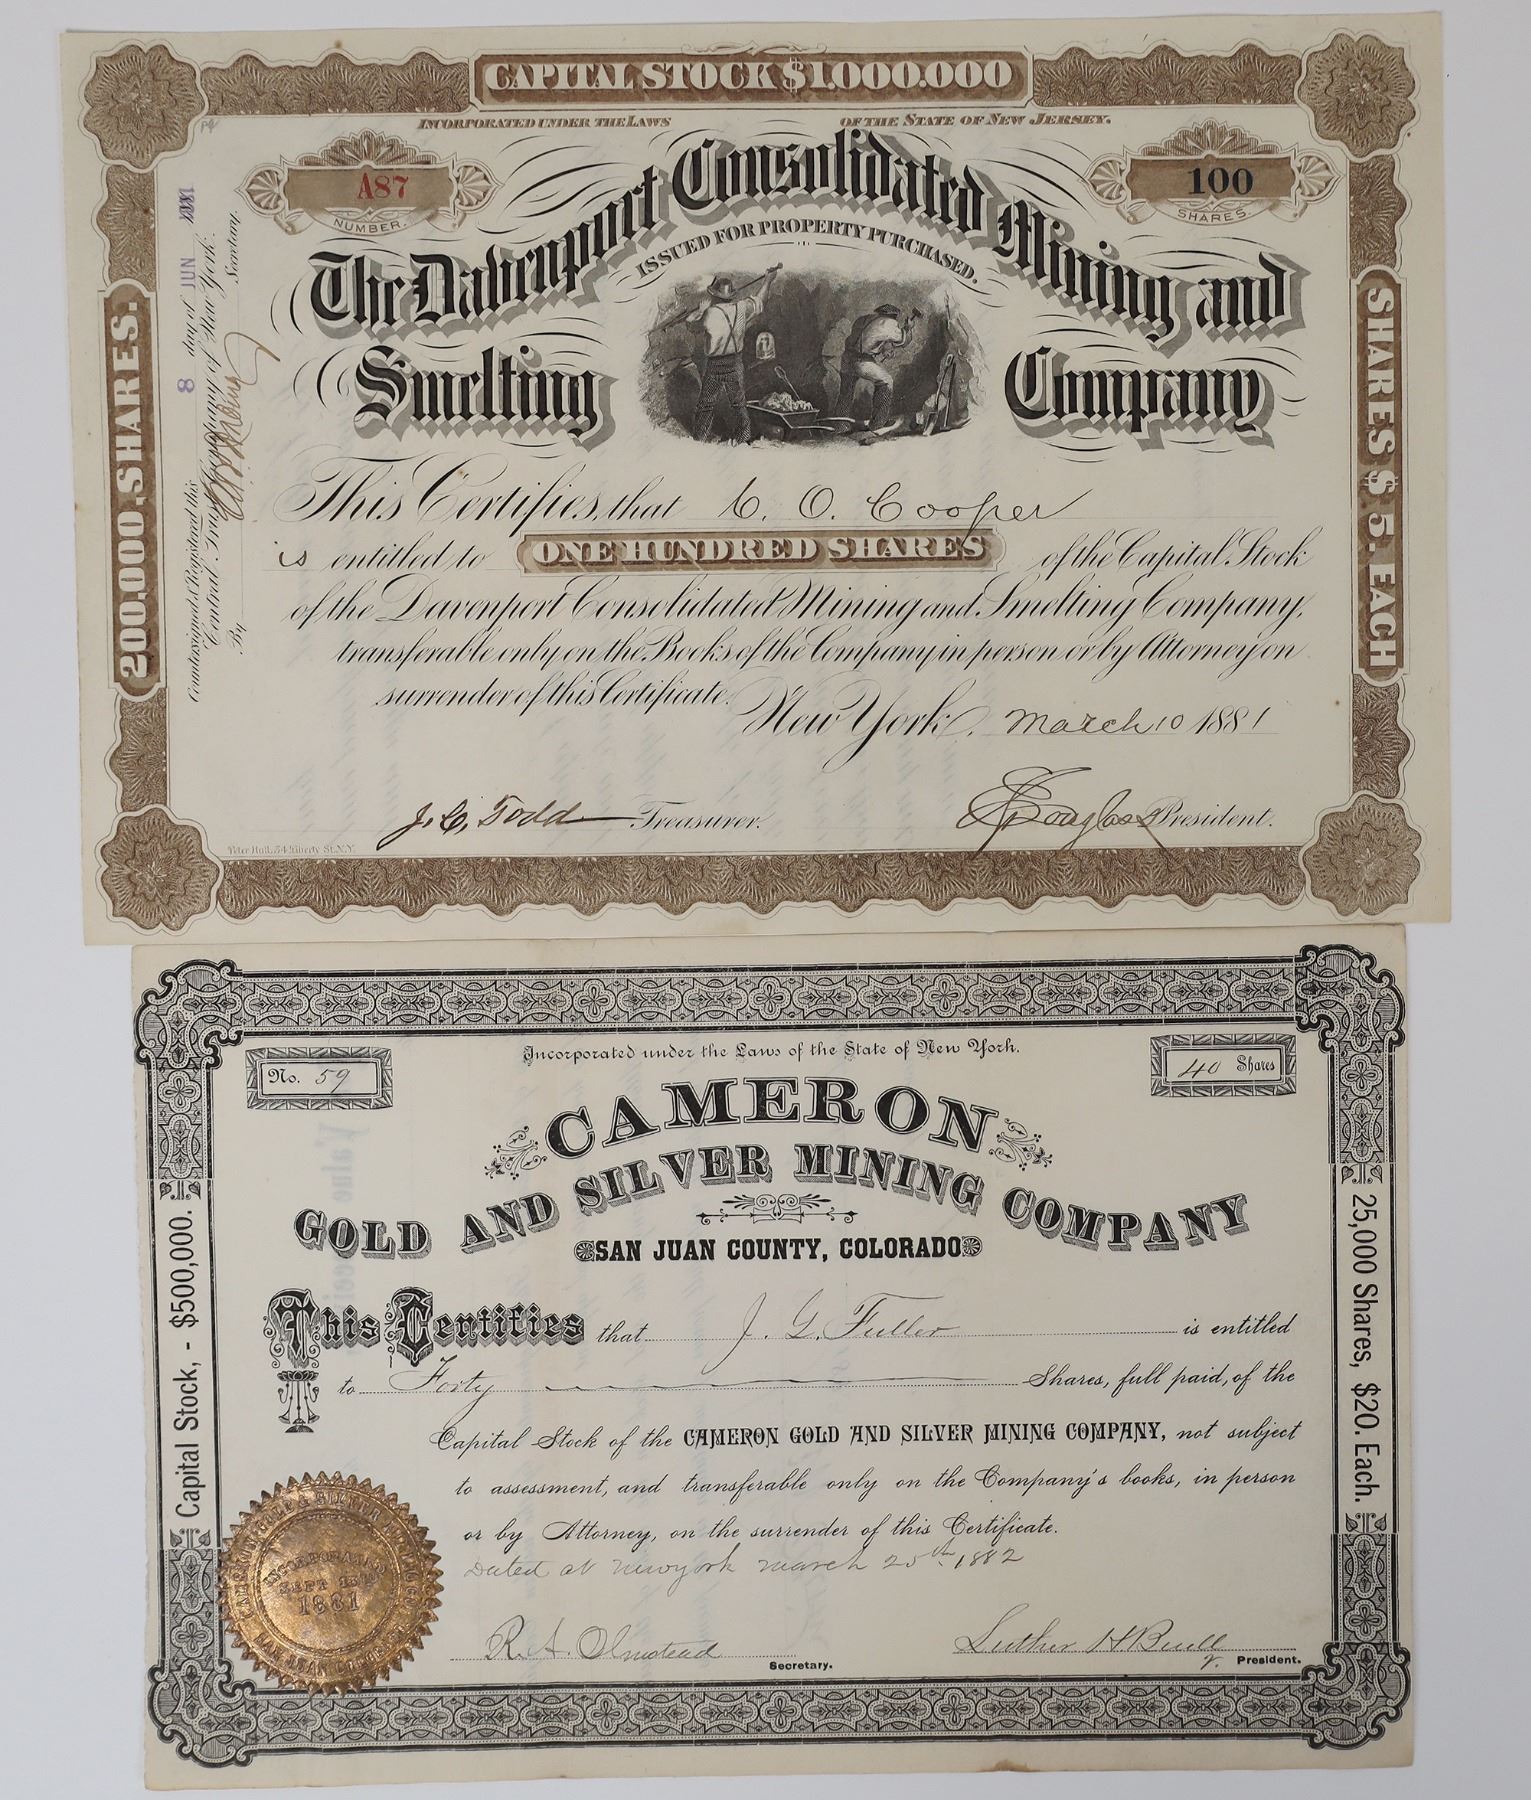 CAPITAL STOCK $1,000,000
INCORPORATED UNDER THE LAWS OF THE STATE OF NEW JERSEY.
A87
NUMBER.
100
SHARES.
The Davenport Consolidated Mining and
ISSUED FOR PROPERTY PURCHASED.
Smelting Company
200,000 SHARES.
SHARES $5. EACH
Countersigned & Registered this
8 day of JUN
Central Trust Company of New York.
By Secretary.
This Certifies, that C. O. Cooper
is entitled to ONE HUNDRED SHARES of the Capital Stock
of the Davenport Consolidated Mining and Smelting Company,
transferable only on the Books of the Company in person or by Attorney on
surrender of this Certificate.
New York, March 10 1881
J. C. Todd Treasurer.
Douglas President.
Peter Hull, 54 Liberty St. N.Y.
Incorporated under the Laws of the State of New York.
No. 59
40 Shares
CAMERON
GOLD AND SILVER MINING COMPANY
SAN JUAN COUNTY, COLORADO
Capital Stock, - $500,000.
25,000 Shares, $20. Each.
This Certifies that J. G. Fuller is entitled
to Forty Shares, full paid, of the
Capital Stock of the CAMERON GOLD AND SILVER MINING COMPANY, not subject
to assessment, and transferable only on the Company's books, in person
or by Attorney, on the surrender of this Certificate.
Dated at Newyork March 25th 1882
CAMERON GOLD & SILVER MINING CO.
INCORPORATED
SEPT
1881
SAN JUAN CO.
R. A. Olmstead
Secretary.
Luther H. Buell
V. President.